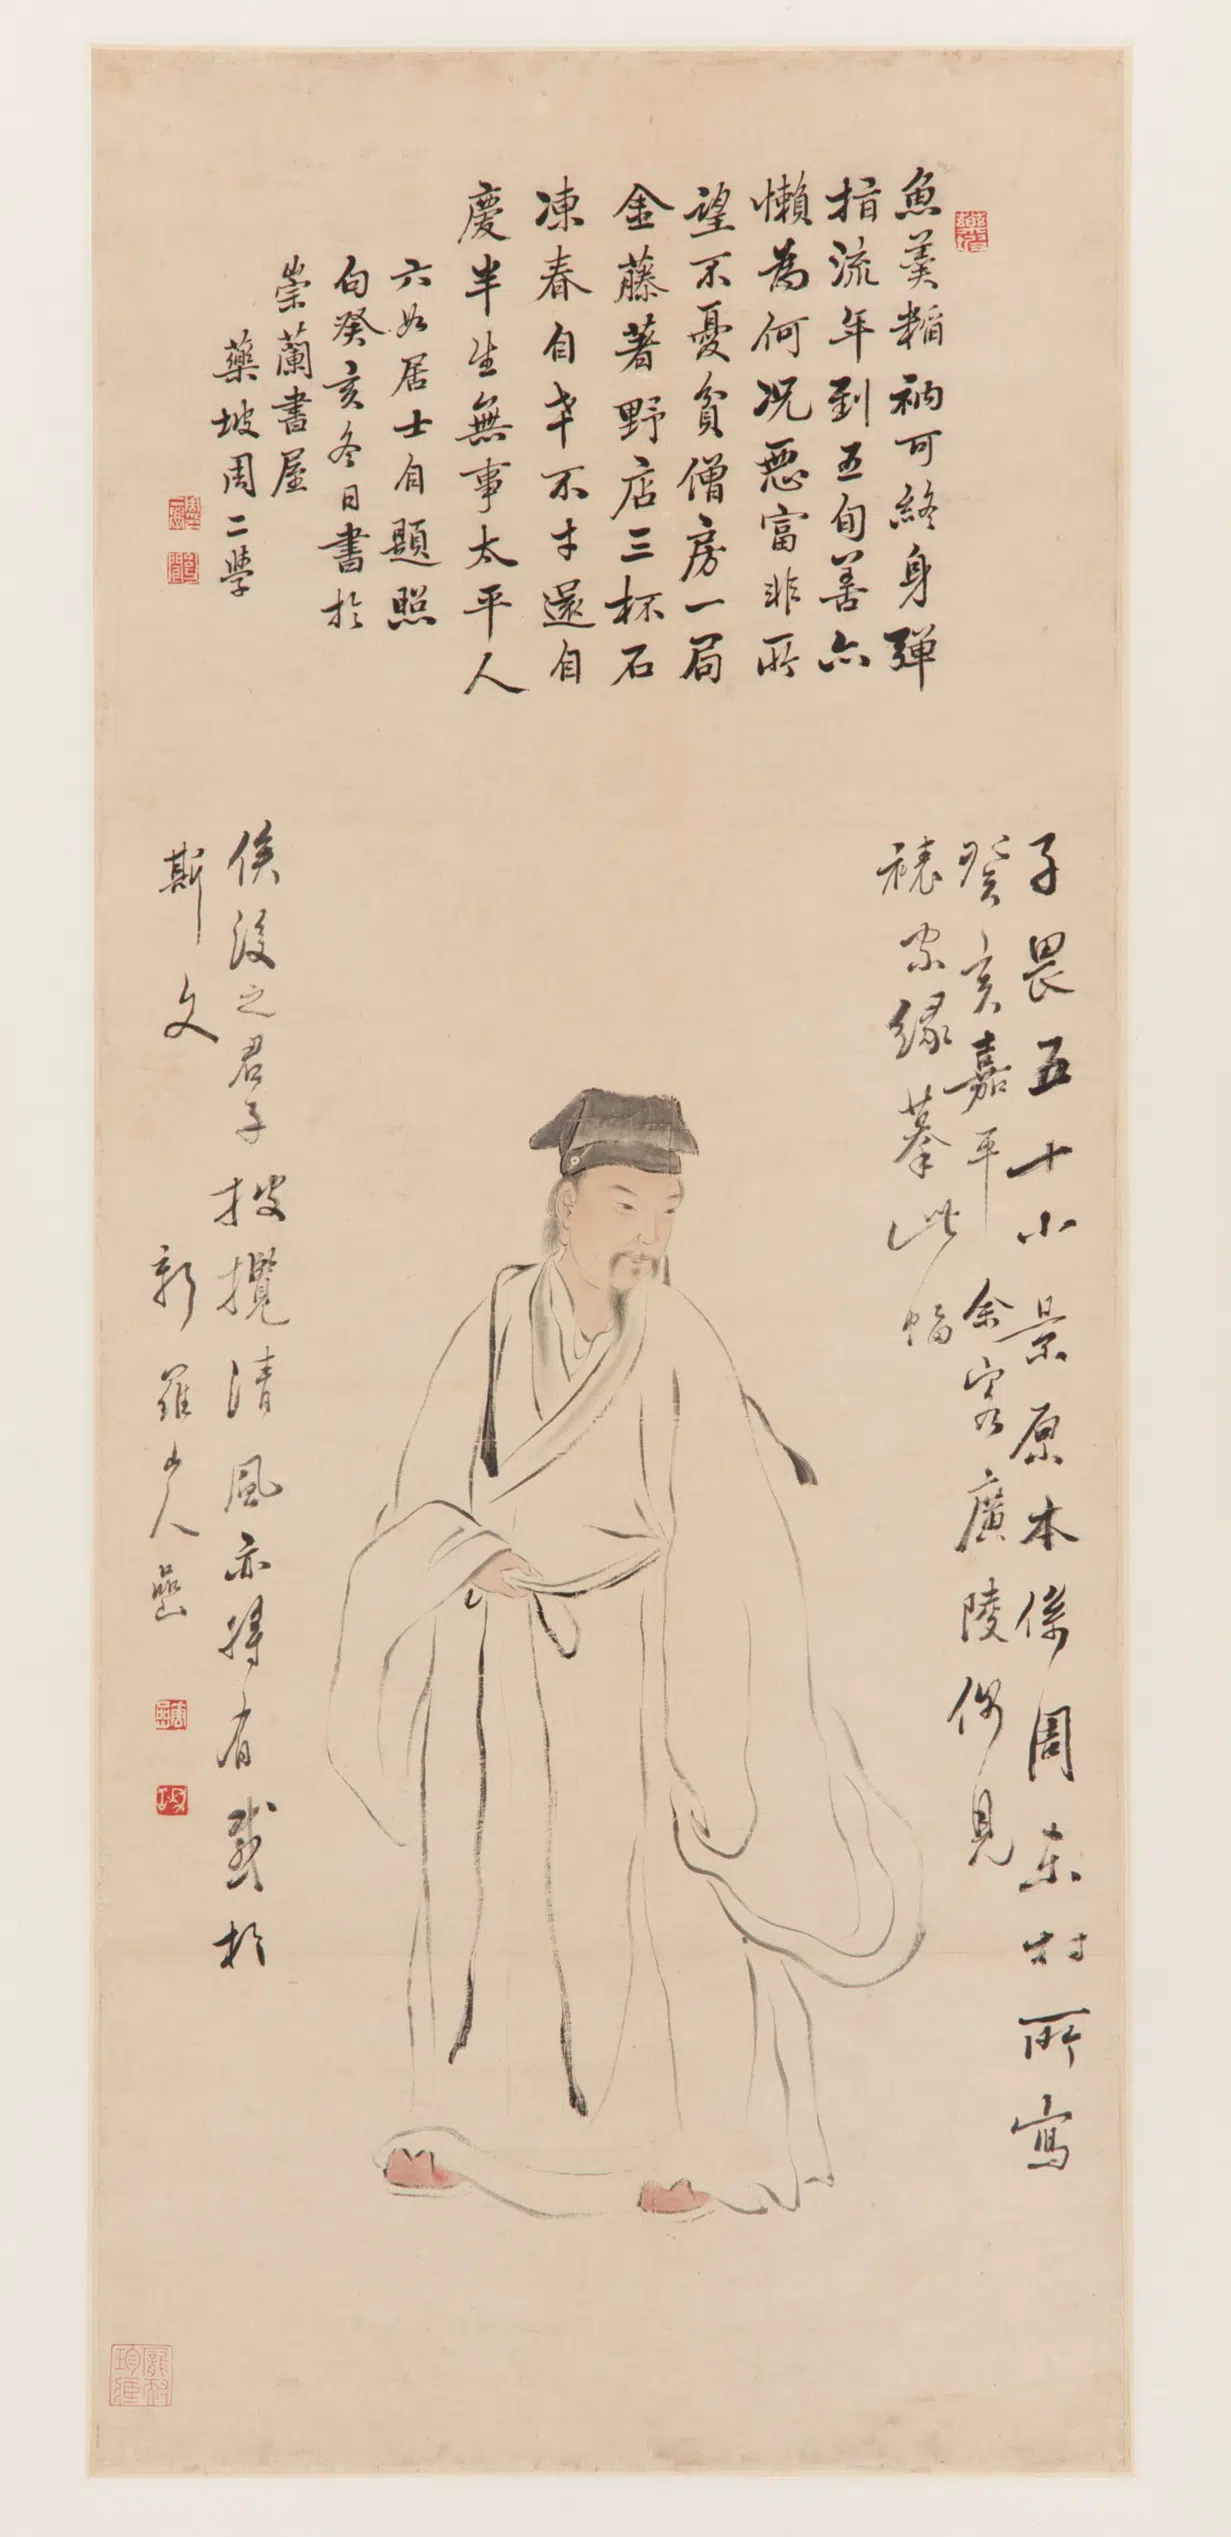 魚羹稻衲可終身彈
指流年到五旬善亦
懶為何况惡富非所
望不憂貧僧房一局
金藤著野店三杯石
凍春自幸不才還自
慶半生無事太平人
六如居士自題照
句癸亥冬日書於
崇蘭書屋
藥坡周二學
子畏五十小景原本係周東村所寫
癸亥嘉平余客廣陵偶見
裱家緣摹此幅
俟後之君子披攬清風亦將有感於
斯文 新羅山人嵒